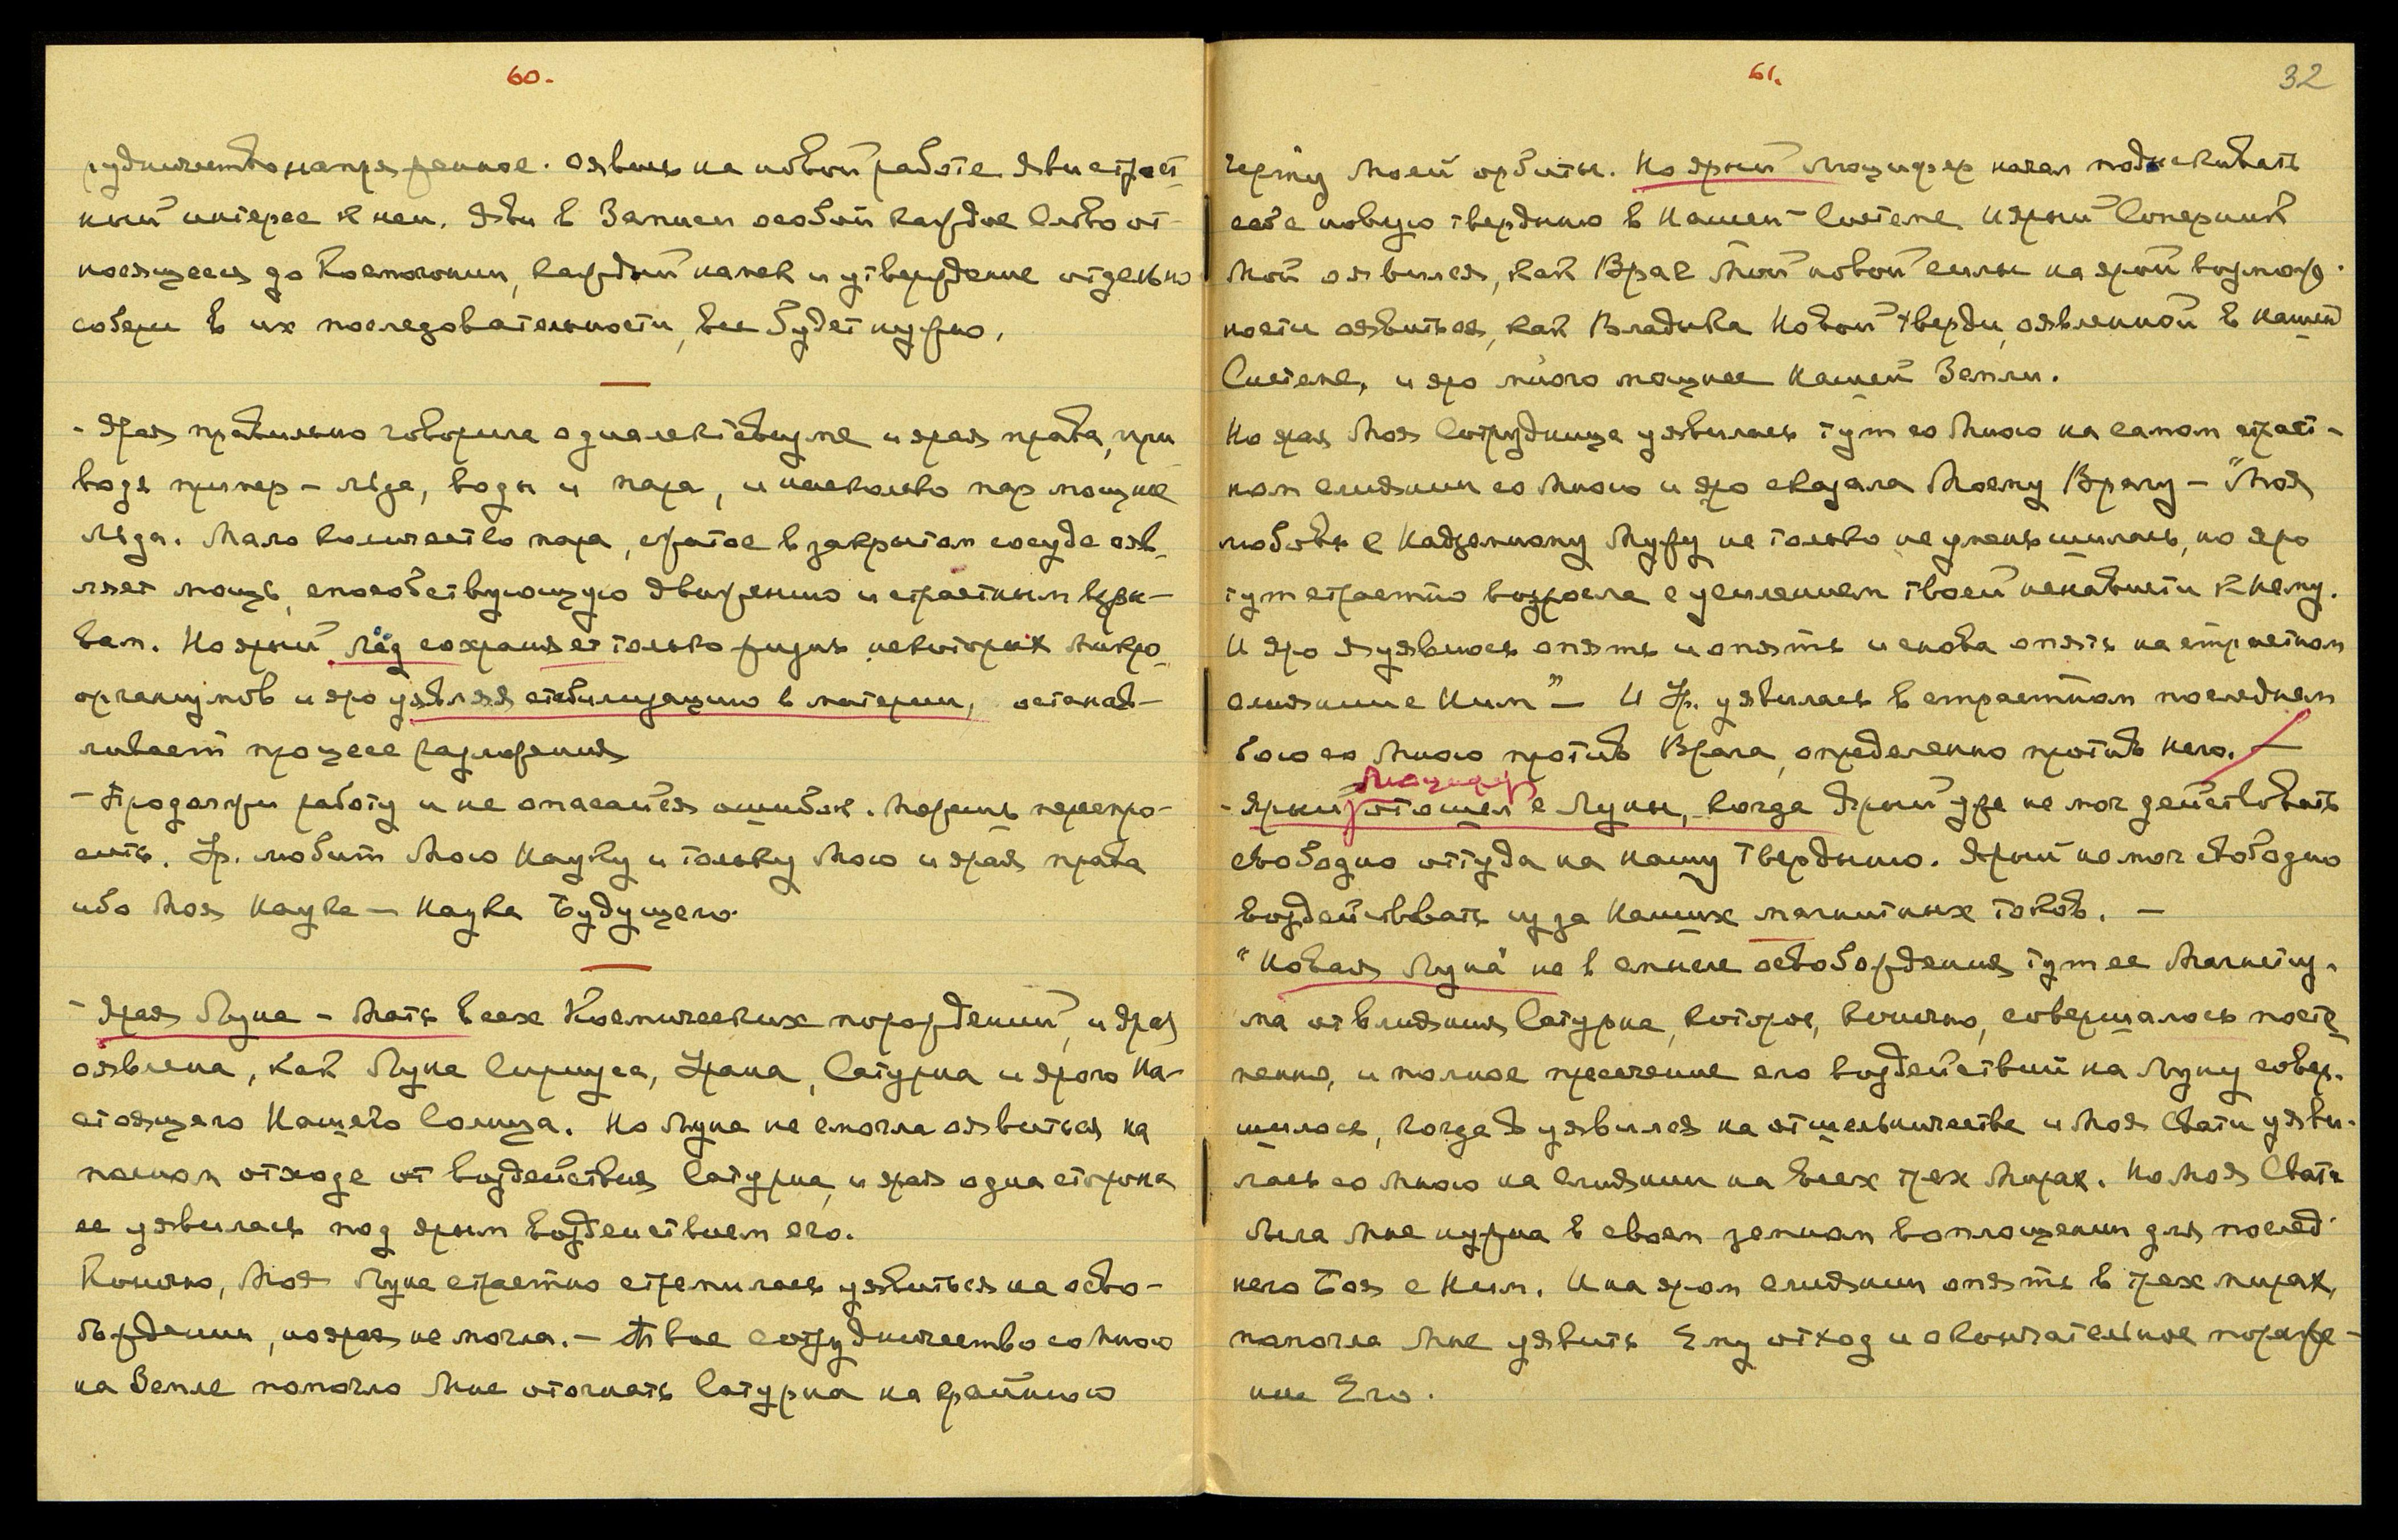 60.
рудничество напряженное. Оявись на новой работе. Яви страст-
ный интерес к ней. Яви в Записи особой каждое Слово от-
носящееся до Космогонии, каждый намек и утверждение отдельно
собери в их последовательности, все будет нужно.
- Ярая правильно говорила о диалектевизме и ярая права, при
водя пример - льда, воды и пара, и насколько пар мощнее
льда. Мало количество пара, сжатое в закрытом сосуде явв-
ляет мощь, способствующую движению и страстным взры-
вам. Но ярый лёд сохраняет только жизнь некоторых микро-
организмов и яро уявляя стабилизацию в материи, останав-
ливает процесс разложения
- Продолжи работу и не опасайся ошибок. Можешь переспро-
сить. Ур. любит Мою Науку и только Мою и ярая права
ибо Моя Наука — Наука Будущего.
- Ярая Луна - Мать всех Космических порождений, и ярая
оявлена, как Луна Сириуса, Урана, Сатурна и ярого На-
стоящего Нашего Солнца. Но Луна не смогла оявиться на
полном отходе от воздействия Сатурна, и ярая одна сторона
ее уявилась под ярым воздействием его.
Конечно, Моя Луна страстно стремилась уявиться на осво-
бождении, но ярая не могла. — Твое сотрудничество со Мною
на Земле помогло Мне отогнать Сатурна на крайнюю
61.
32
черту Моей орбиты. Но ярый Люцифер начал подыскивать
себе новую твердыню в Нашей Системе и ярый Соперник
Мой оявился, как Враг Мой новой силы на ярой возмож-
ности оявиться, как Владыка Новой тверди, оявленной в нашей
Системе, и яро много мощнее Нашей Земли.
Но ярая Моя Сотрудница уявилась тут со Мною на самом страст-
ном слиянии со Мною и яро сказала Моему Врагу — "Моя
любовь к Надземному Мужу не только не уменьшилась, но яро
тут страстно возросла с усилением твоей ненависти к Нему.
И яро я уявлюсь опять и опять и снова опять на страстном
слиянии с Ним" — И Ур. уявилась в страстном последнем
бою со Мною против Врага, определенно против него. —
Люцифер
- Ярый отошел с Луны, когда Ярый уже не мог действовать
свободно оттуда на нашу Твердыню. Ярый не мог свободно
воздействовать из за Наших магнитных токов. —
"Новая Луна" не в смысле освобождения тут ее Магнетиз-
ма от влияния Сатурна, которое, конечно, совершалось посте-
пенно, и полное пресечение его воздействий на Луну совер-
шилось, когда Я уявился на отшельничестве и Моя Свати уяви-
лась со Мною на слиянии на Всех трех Мирах. Но Моя Свати
была Мне нужна в своем земном воплощении для послед-
него Боя с Ним. И на яром слиянии опять в трех мирах,
помогла Мне уявить Ему отход и окончательное пораже-
ние Его.